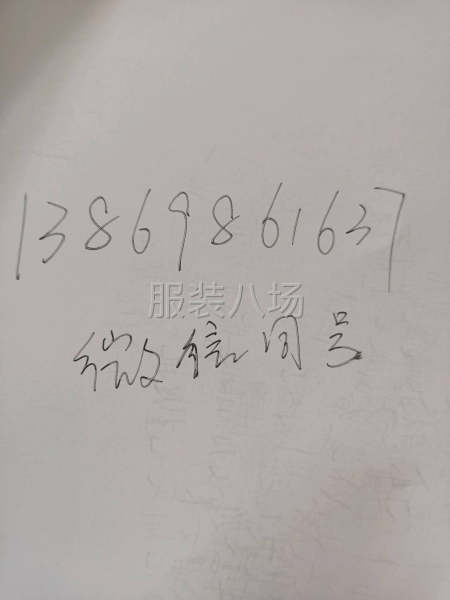 13869861637
服装八场
微信同号